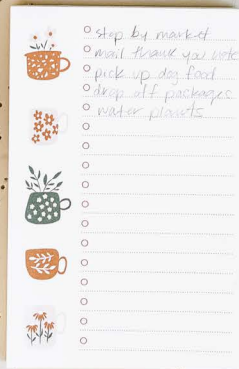 stop by market
mail thank you note
pick up dog food
drop off packages
water plants